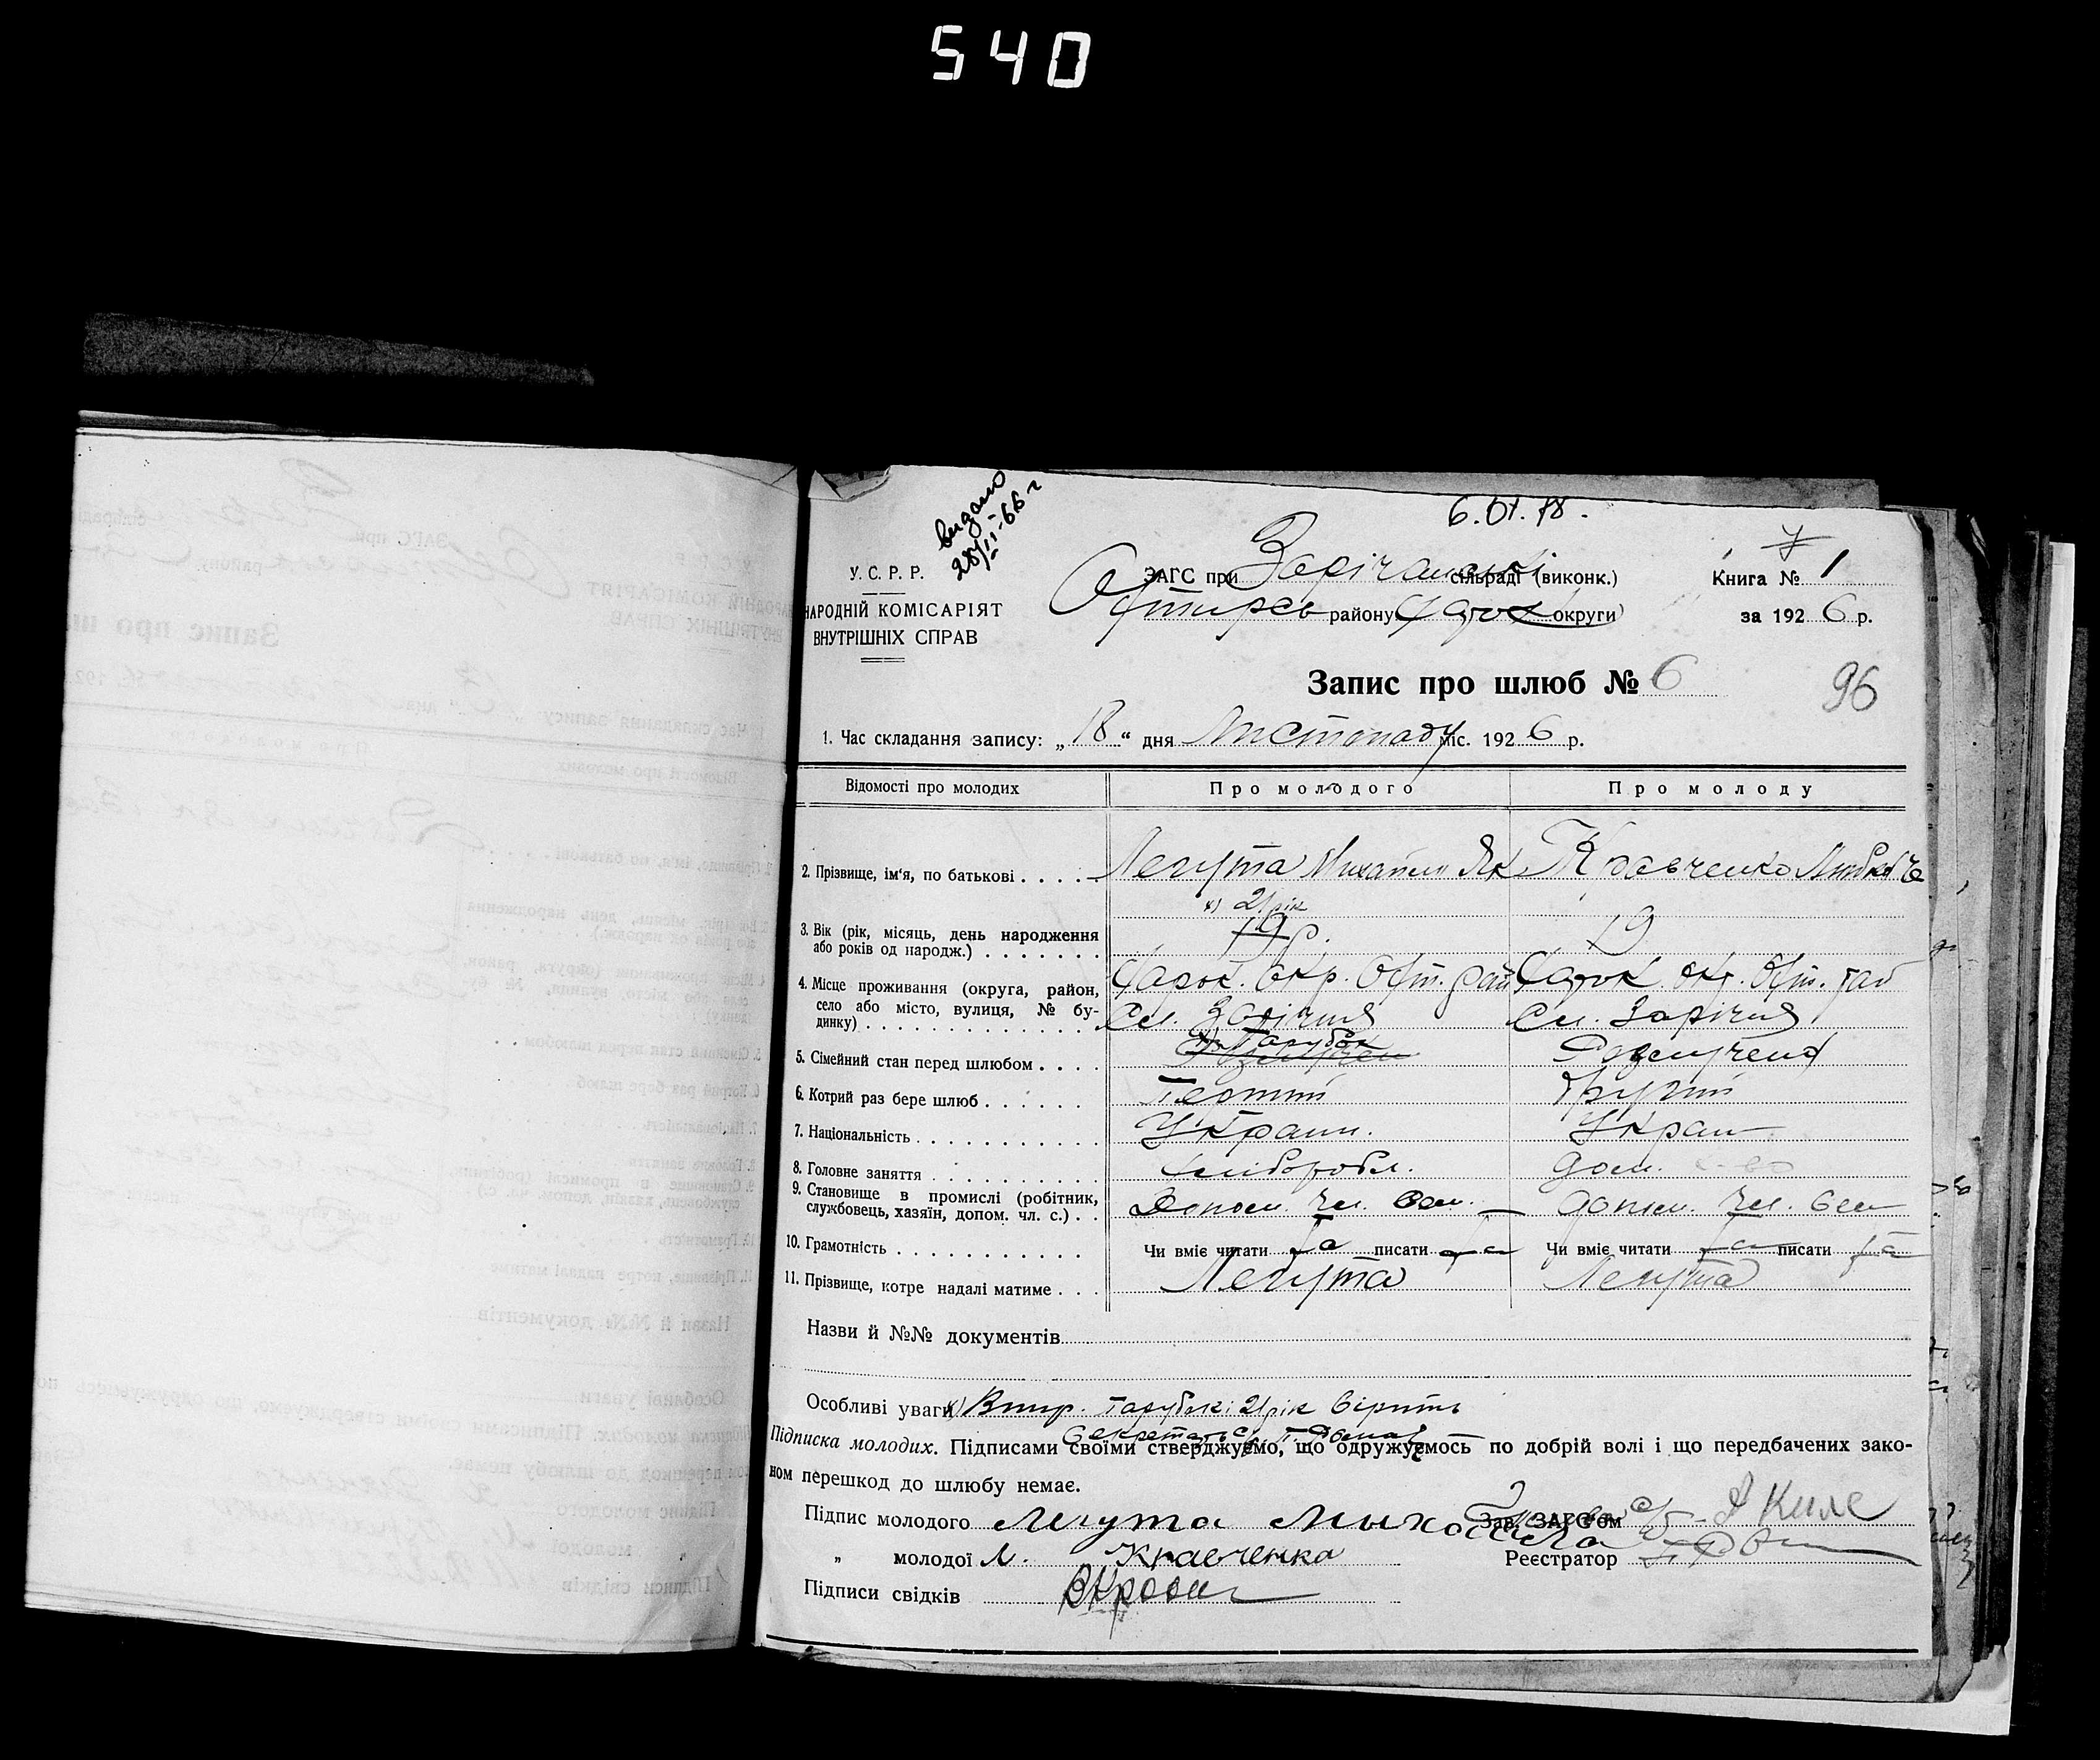 540
видано
28/II-66 г
6.01.78.
У. С. Р. Р.
НАРОДНІЙ КОМІСАРІЯТ
ВНУТРІШНІХ СПРАВ
ЗАГС при Зарічанські сільраді (виконк.)
Охтирсь району Харк округи)
Книга № 1
за 1926 р.
Запис про шлюб № 6
96
1. Час складання запису: „18“ дня Листопаду міс. 1926 р.
Відомості про молодих Про молодого Про молоду
2. Прізвище, ім'я, по батькові . . . . Легута Михайло Як Кравченко
х) 21 рік
3. Вік (рік, місяць, день народження 19 р. 19
або років од народж.) . . . . . . .
4. Місце проживання (округа, район, Харьк. окр. Охт. рай Харьк. окр. Охт. рай
село або місто, вулиця, № бу- Сл. Зарічча Сл. Зарічча
динку) . . . . . . . . . . . . . .
х) Парубок
5. Сімейний стан перед шлюбом . . . . Розлучен Розлучена
6. Котрий раз бере шлюб . . . . . . Перший Другий
7. Національність . . . . . . . . . . . Україн. Україн
8. Головне заняття . . . . . . . . . . хліборобл. дом.
9. Становище в промислі (робітник, Допом. чл. сем. допом. чл. сем
службовець, хазяїн, допом. чл. с.) . .
10. Грамотність . . . . . . . . . . . . Чи вміє читати да писати да Чи вміє читати да писати да
11. Прізвище, котре надалі матиме . . . Легута Легута
Назви й №№ документів
Особливі уваги х) Випр. Парубок і 21 рік вірить
Секретарь с/р
Підписка молодих. Підписами своїми стверджуємо, що одружуємось по добрій волі і що передбачених зако-
ном перешкод до шлюбу немає.
Підпис молодого Легута Мыхайла Зав. ЗАГС'ом
„ молодої Л. Кравченка Реєстратор
Підписи свідків